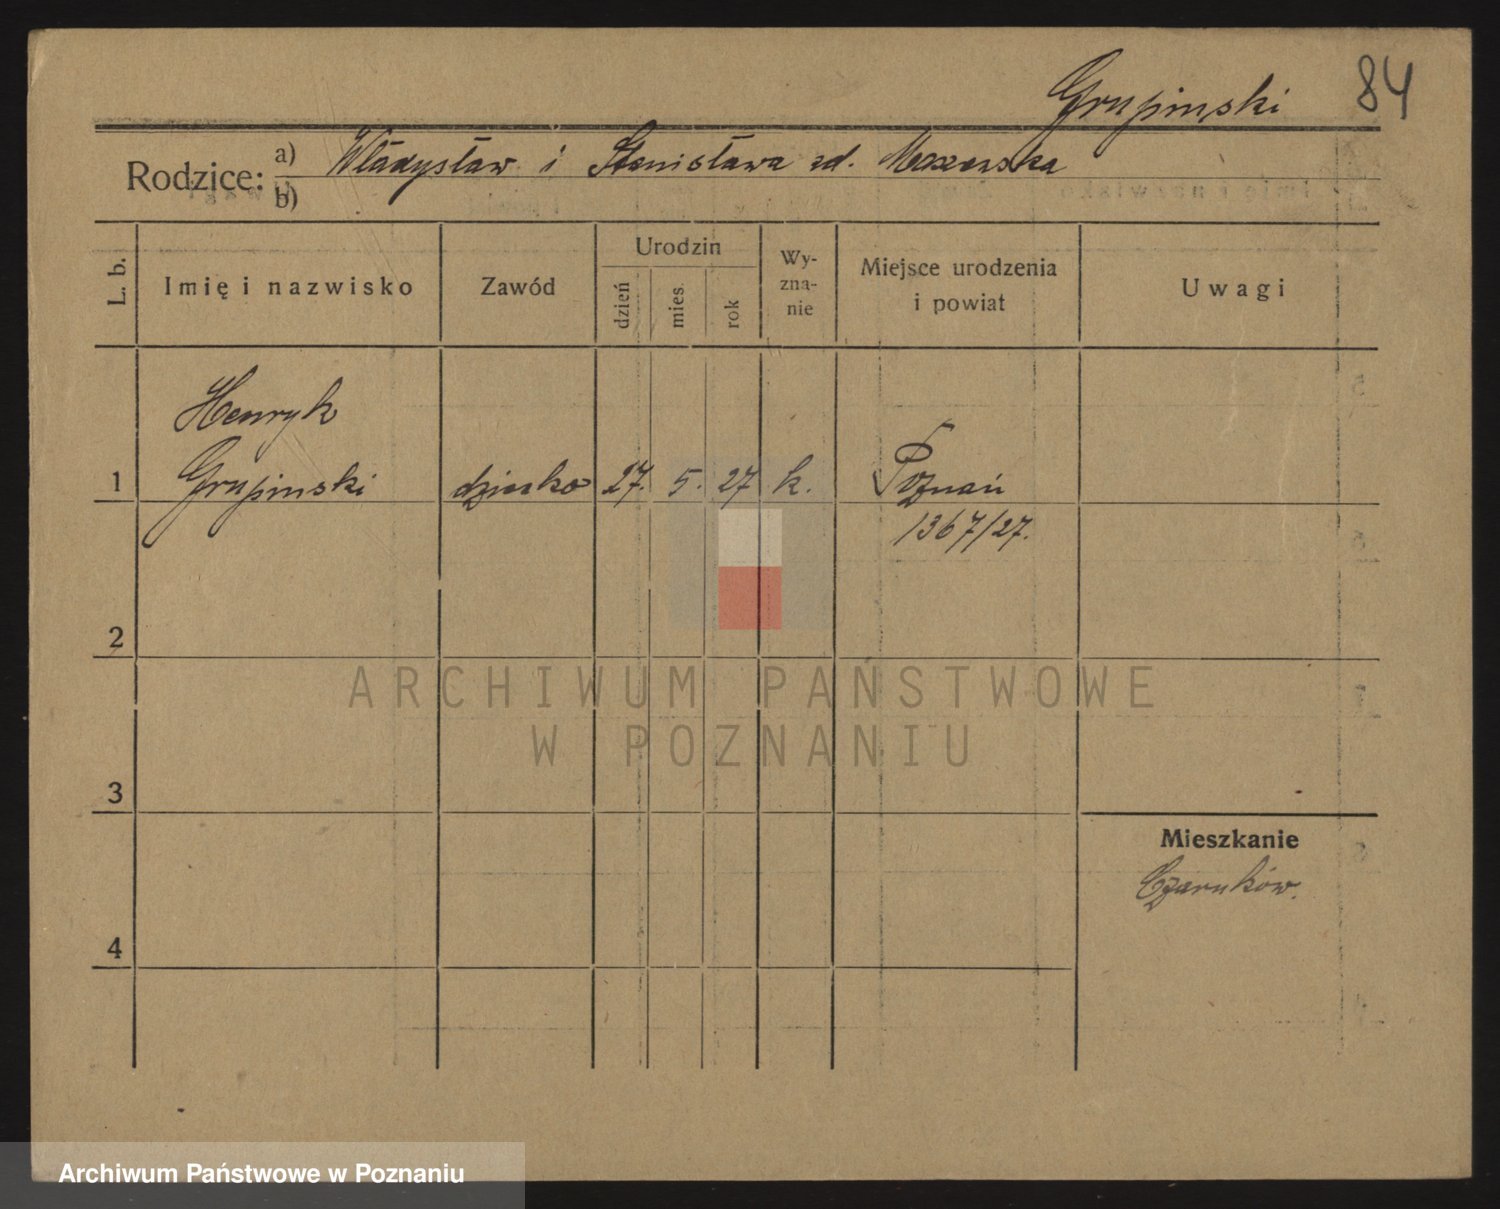 Grupinski 84
Rodzice: a) Władysław i Stanisława zd.
b)
L. b. Imię i nazwisko Zawód Urodzin dzień mies. rok Wy-zna-nie Miejsce urodzenia i powiat Uwagi
Henryk
1 Grupinski dziecko 27. 5. 27 k. Poznań
1367/27.
2
ARCHIWUM PAŃSTWOWE
W POZNANIU
3
Mieszkanie
Czarnków.
4
Archiwum Państwowe w Poznaniu